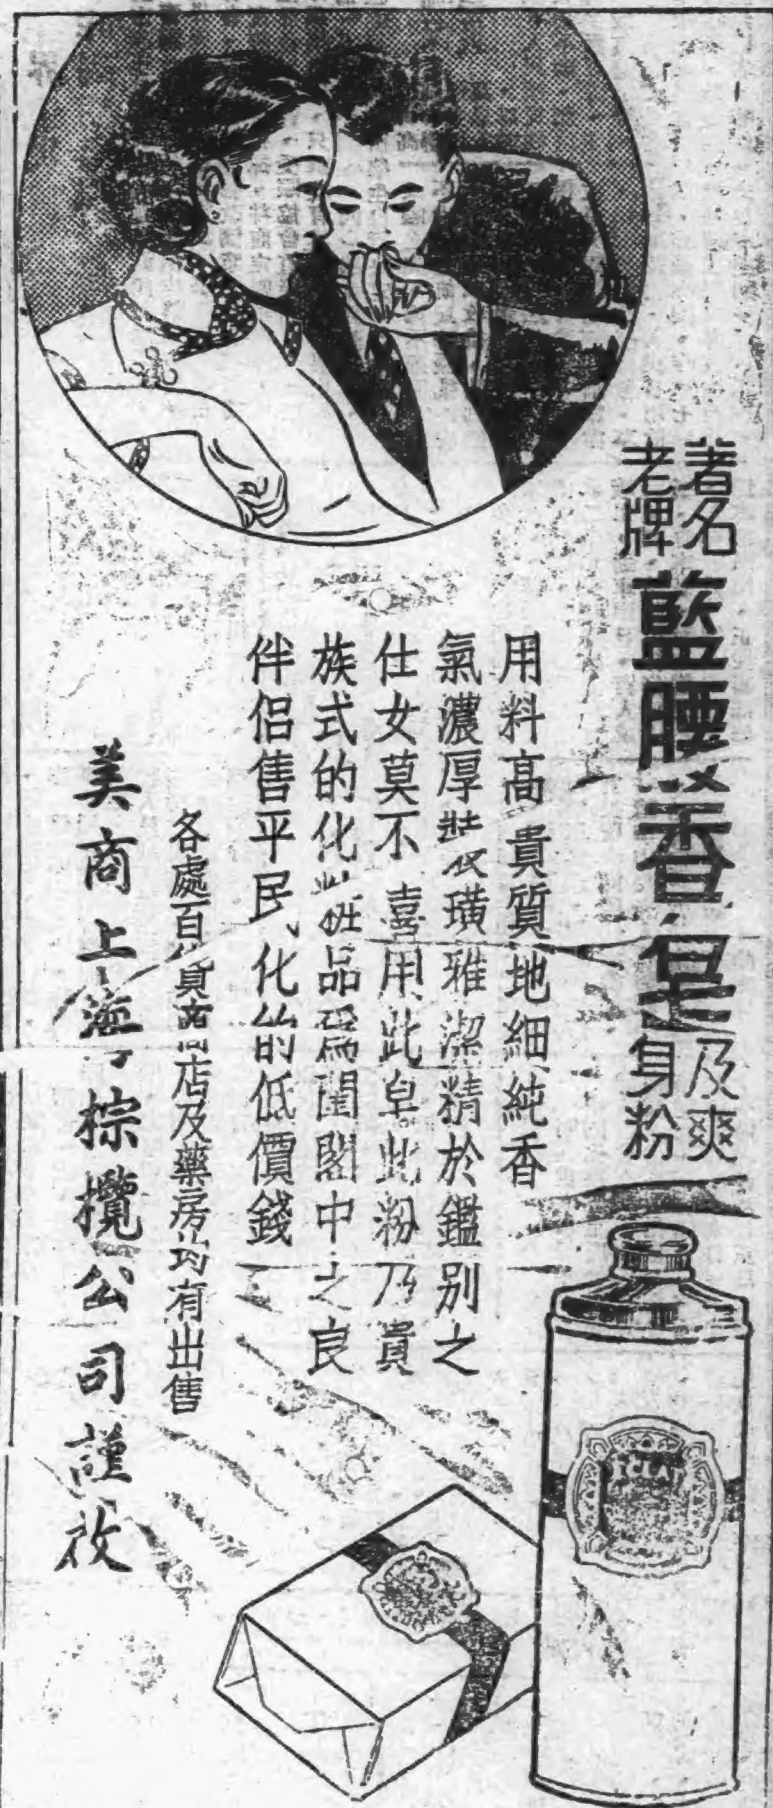 著名
老牌
藍腰香皂
及爽
身粉
用料高貴質地細純香
氣濃厚裝璜雅潔精於鑑別之
仕女莫不喜用此皂此粉乃貴
族式的化妝品為閨閣中之良
伴侶售平民化的低價錢
各處百貨商店及藥房均有出售
美商上海棕欖公司謹啟